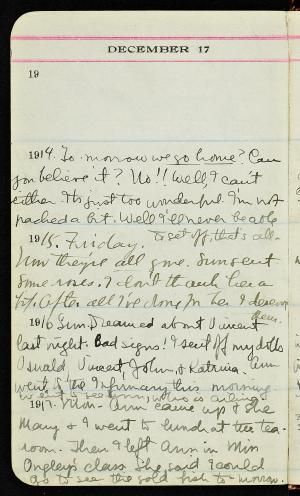 DECEMBER 17
19
1914. To-morrow we go home? Can
you believe it? No!! Well, I can't
either. It's just too wonderful. I'm not
packed a bit. Well I'll never be able
to set off, that's all.
1915. Friday.
Now they're all gone. Sun sent
some roses. I don't thank her a
bit. After all I've done for her I deserve
them.
1916 Sun. Dreamed about Vincent
last night. Bad signs! I sent off my dolls
Oswald Vincent, John, & Katrina. Ann
went to the Infirmary this morning
1917. Mon. Ann came up & she
Mary & I went to lunch at the tea-
room. Then I left Ann in Miss
class. She said I could
go to see the gold fish to-morrow.